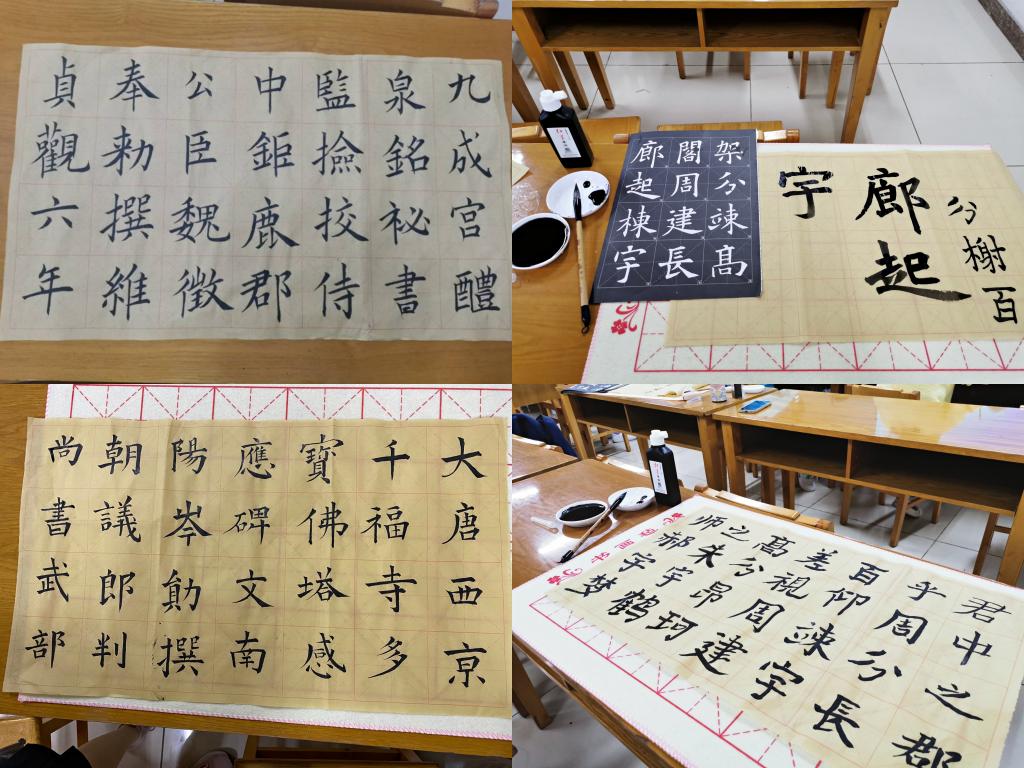 九成宫醴
泉銘祕書
監撿挍侍
中鉅鹿郡
公臣魏徵
奉勅撰維
貞觀六年
架分竦高
閤周建長
廊起棟宇
分榭百
廊起
宇
大唐西京
千福寺多
寶佛塔感
應碑文南
陽岑勛撰
朝議郎判
尚書武部
君中之郡
乎周分長
百仰竦宇
差視周建
高分昂珂
之朱宇鹤
师郝宇梦